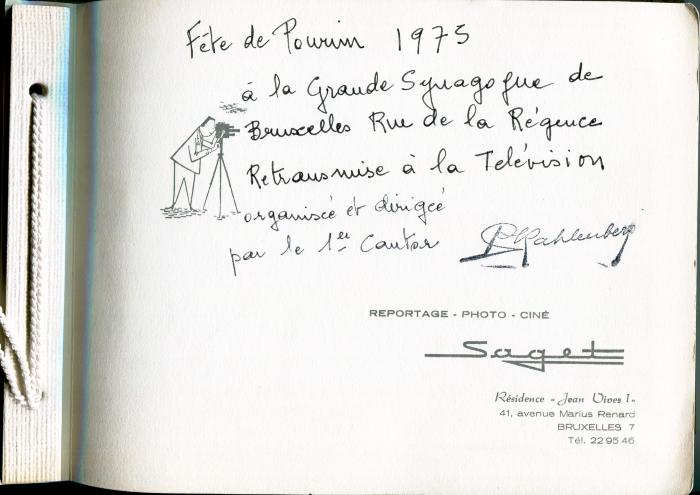 Fête de Pourim 1975
à la Grande Synagogue de
Bruxelles Rue de la Régence
Retransmise à la Télévision
organisée et dirigée
par le 1er Cantor Kahlenberg
REPORTAGE - PHOTO - CINÉ
Saget
Résidence « Jean Vives I »
41, avenue Marius Renard
BRUXELLES 7
Tél. 22 95 46